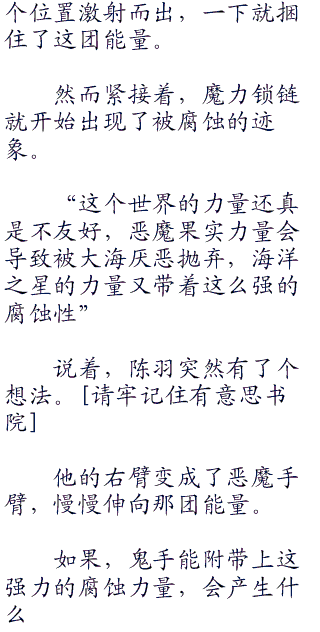 个位置激射而出，一下就捆
住了这团能量。
然而紧接着，魔力锁链
就开始出现了被腐蚀的迹
象。
“这个世界的力量还真
是不友好，恶魔果实力量会
导致被大海厌恶抛弃，海洋
之星的力量又带着这么强的
腐蚀性”
说着，陈羽突然有了个
想法。[请牢记住有意思书
院]
他的右臂变成了恶魔手
臂，慢慢伸向那团能量。
如果，鬼手能附带上这
强力的腐蚀力量，会产生什
么